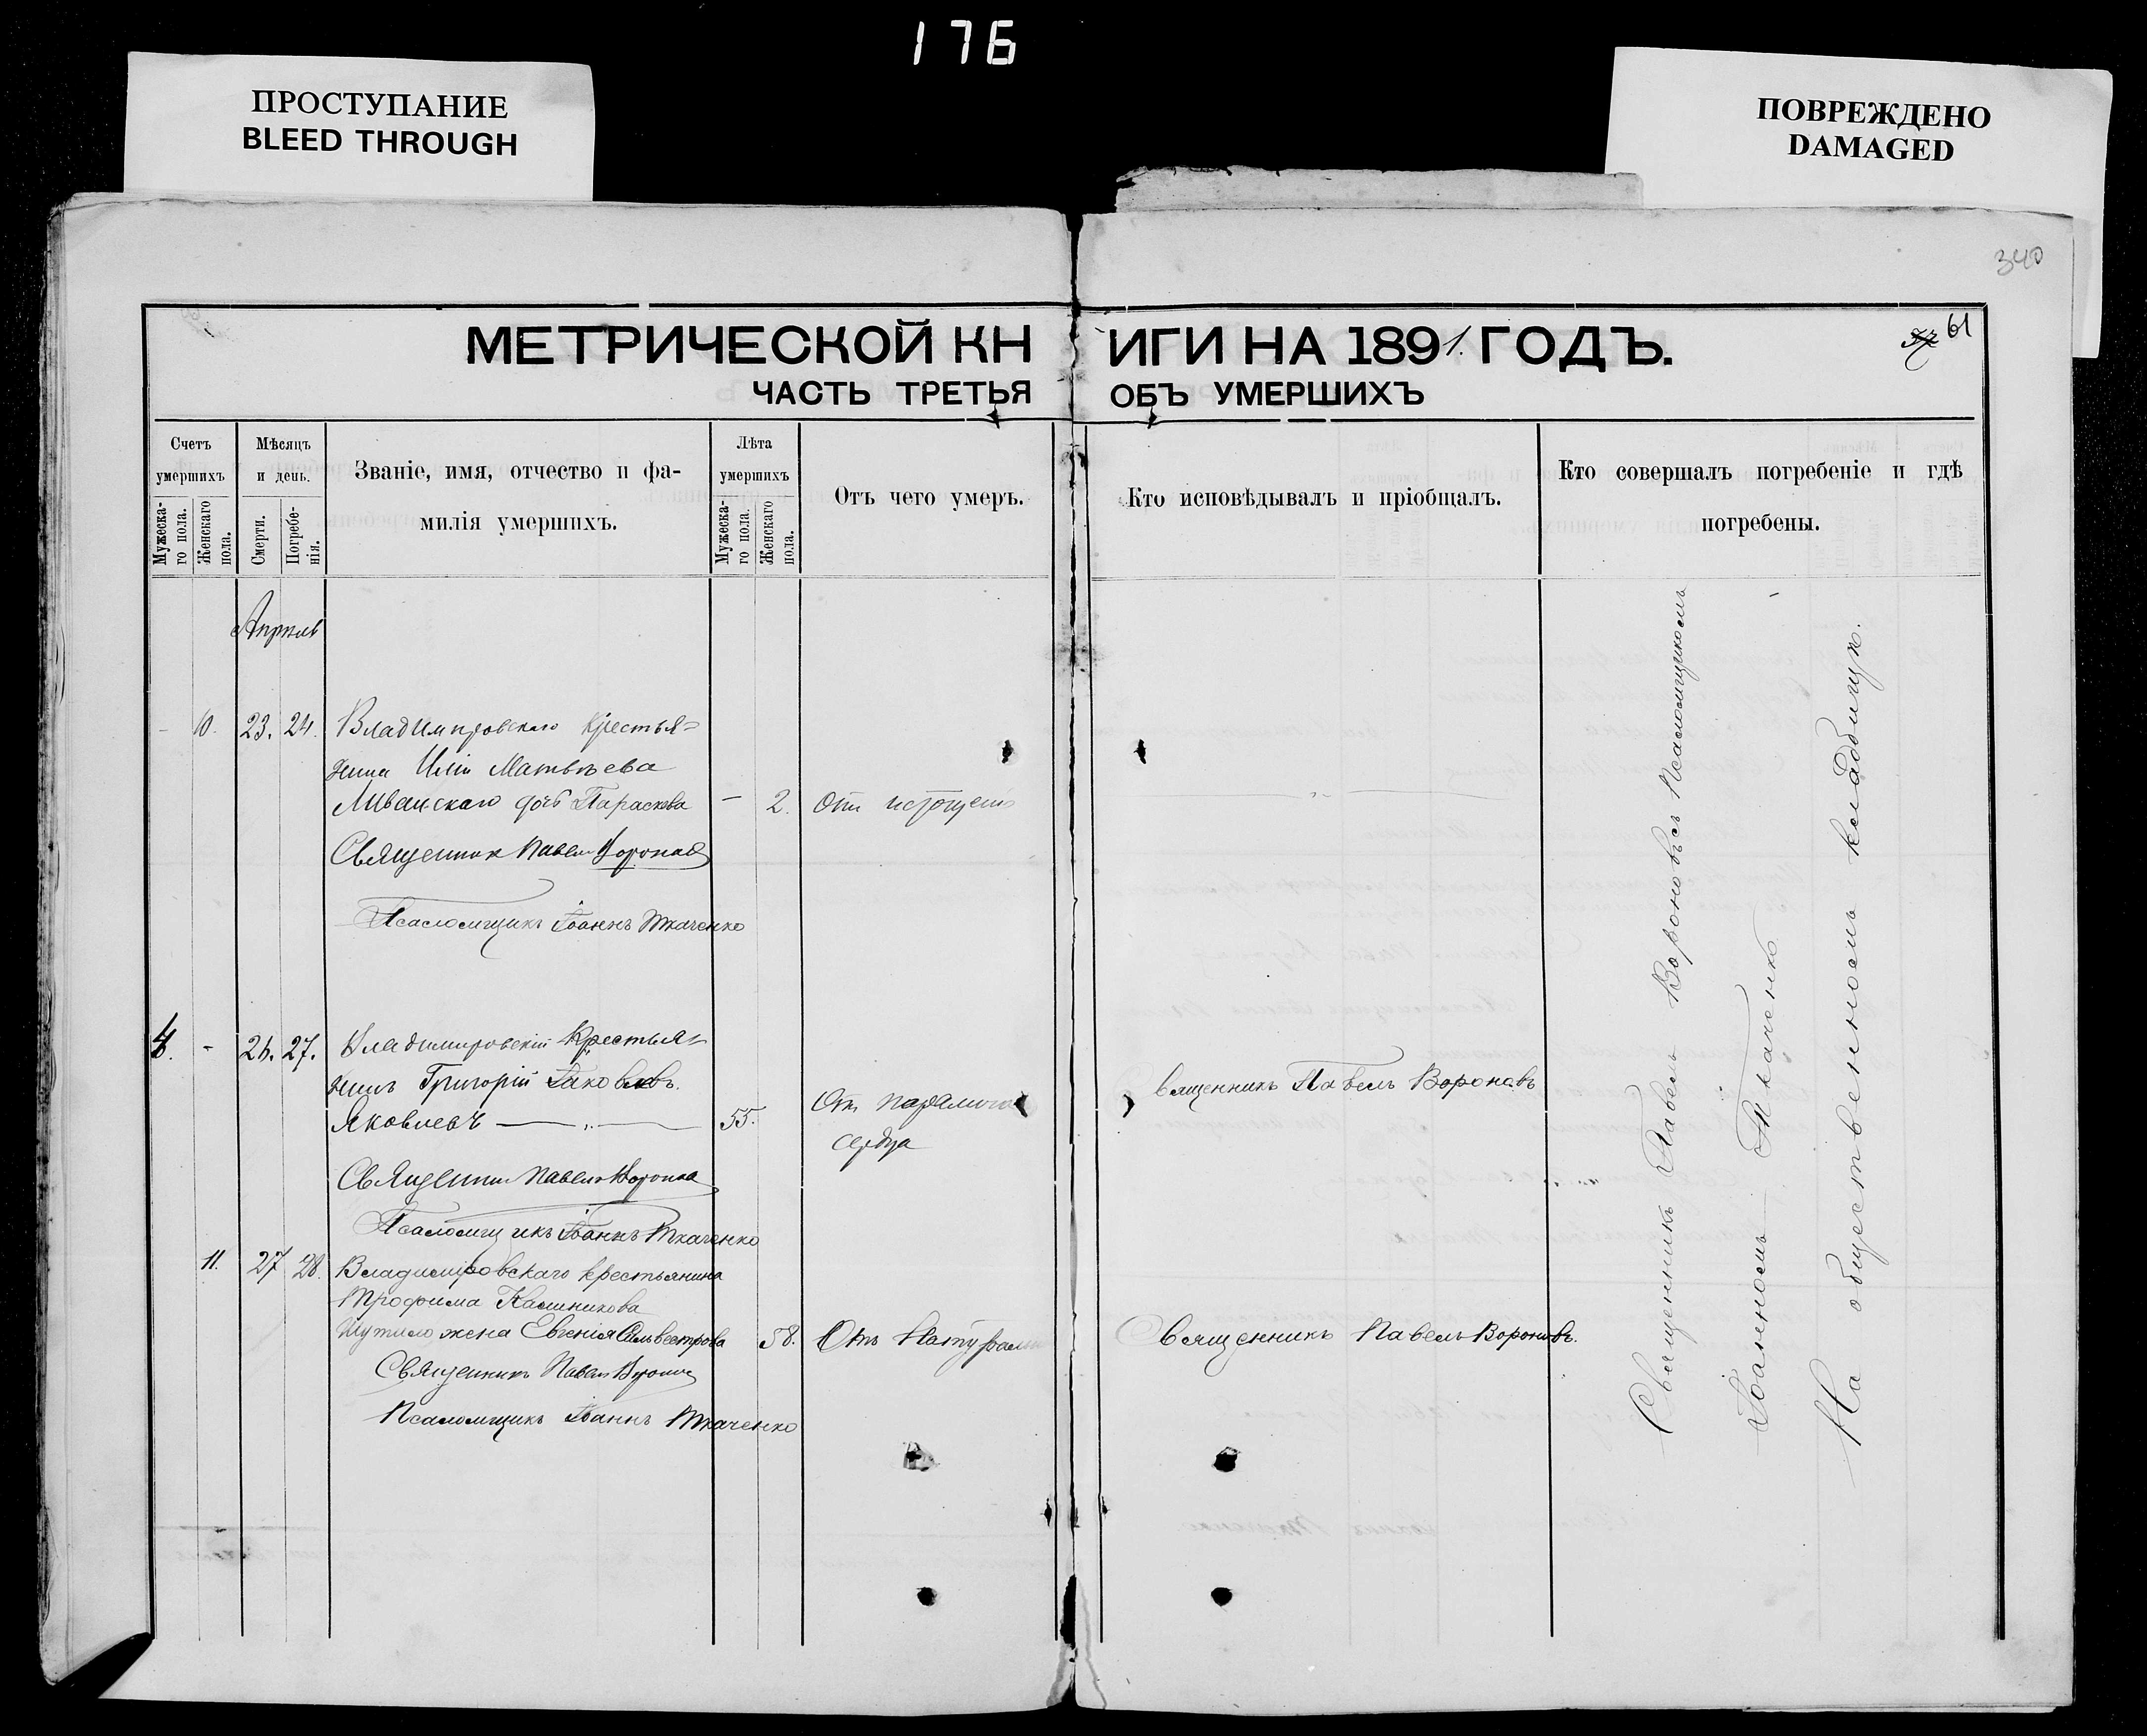 176
ПРОСТУПАНИЕ
BLEED THROUGH
ПОВРЕЖДЕНО
DAMAGED
340
МЕТРИЧЕСКОЙ КНИГИ НА 1891 ГОДЪ.
61
ЧАСТЬ ТРЕТЬЯ ОБЪ УМЕРШИХЪ
Счетъ умершихъ
Мужеска-
го пола.
Женскаго
пола.
Мѣсяцъ и день.
Смерти.
Погребе-
нія.
Званіе, имя, отчество и фа-
милія умершихъ.
Лѣта умершихъ
Мужеска-
го пола.
Женскаго
пола.
Отъ чего умеръ.
Кто исповѣдывалъ и пріобщалъ.
Кто совершалъ погребеніе и гдѣ
погребены.
Апрѣль
- 10. 23. 24. Владимировскаго крестья=
нина Иліи Матвѣева
Ливанскаго дочь Параскева - 2. Отъ истощенія
Священникъ Павелъ Вороновъ
Псаломщикъ Іоаннъ Ткаченко
4. - 26. 27. Владимировскій крестья=
нинъ Григорій Іаковлевъ
Яковлевъ 55. Отъ паралича
сердца
вященникъ Павелъ Вороновъ
Священникъ Павелъ Вороновъ
Псаломщикъ Іоаннъ Ткаченко
11. 27 28. Владимировскаго крестьянина
Трофима Калиникова
Шутило жена Евгенія Сильвестрова 58. Отъ Натураль
Священникъ Павелъ Вороновъ.
Священникъ Павелъ Вороновъ
Псаломщикъ Іоаннъ Ткаченко
Священникъ Павелъ Вороновъ съ Псаломщикомъ
Іоанномъ Ткаченко
На общественномъ кладбищѣ.